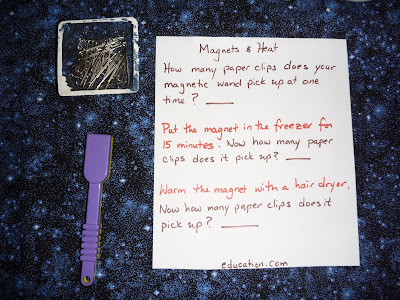 Magnets & Heat
How many paper clips does your
magnetic wand pick up at one
time? ____
Put the magnet in the freezer for
15 minutes. Now how many paper
clips does it pick up? ____
Warm the magnet with a hair dryer.
Now how many paper clips does it
pick up? ____
education.com